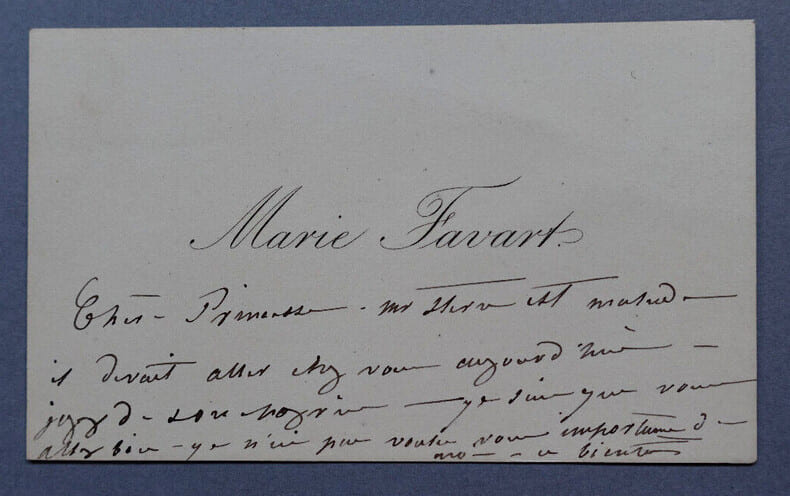 Marie Favart
Chère Princesse - mr est malade
il devait aller chez vous aujourd'hui -
jugez de son chagrin - je sais que vous
allez bien - je n'ai pas voulu vous importuner de
- a bientôt